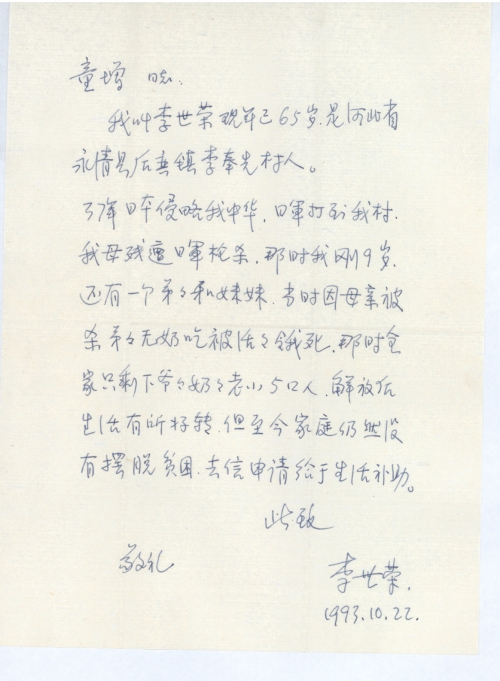 童增 同志.
我叫李世荣现年已65岁.是河北省
永清县后奕镇李奉先村人。
37年日本侵略我中华,日軍打到我村.
我母残遭日軍枪杀.那时我刚9岁.
还有一个弟々和妹妹,当时因母亲被
杀弟々无奶吃被活々饿死.那时全
家只剩下爷々奶々老小5口人.解放后
生活有所好转.但至今家庭仍然没
有摆脱贫困.去信申请给于生活补助。
此致
敬礼
李世荣.
1993.10.22.